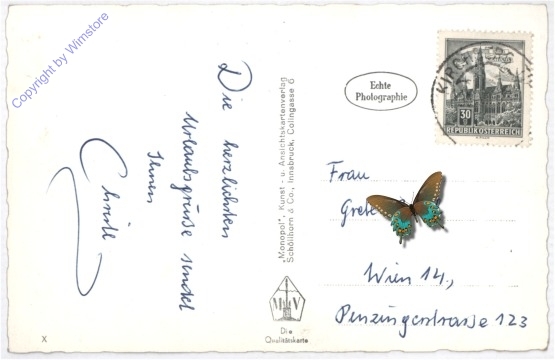 Copyright by Wimstore
Die herzlichsten
Urlaubsgrüße sendet
Ihnen
Christl
„Monopol", Kunst- u. Ansichtskartenverlag
Schöllhorn & Co., Innsbruck, Colingasse 6
Echte
Photographie
30
REPUBLIK ÖSTERREICH
Frau
Grete
Wien 14.,
Penzingerstrasse 123
M V
Die
Qualitätskarte
X